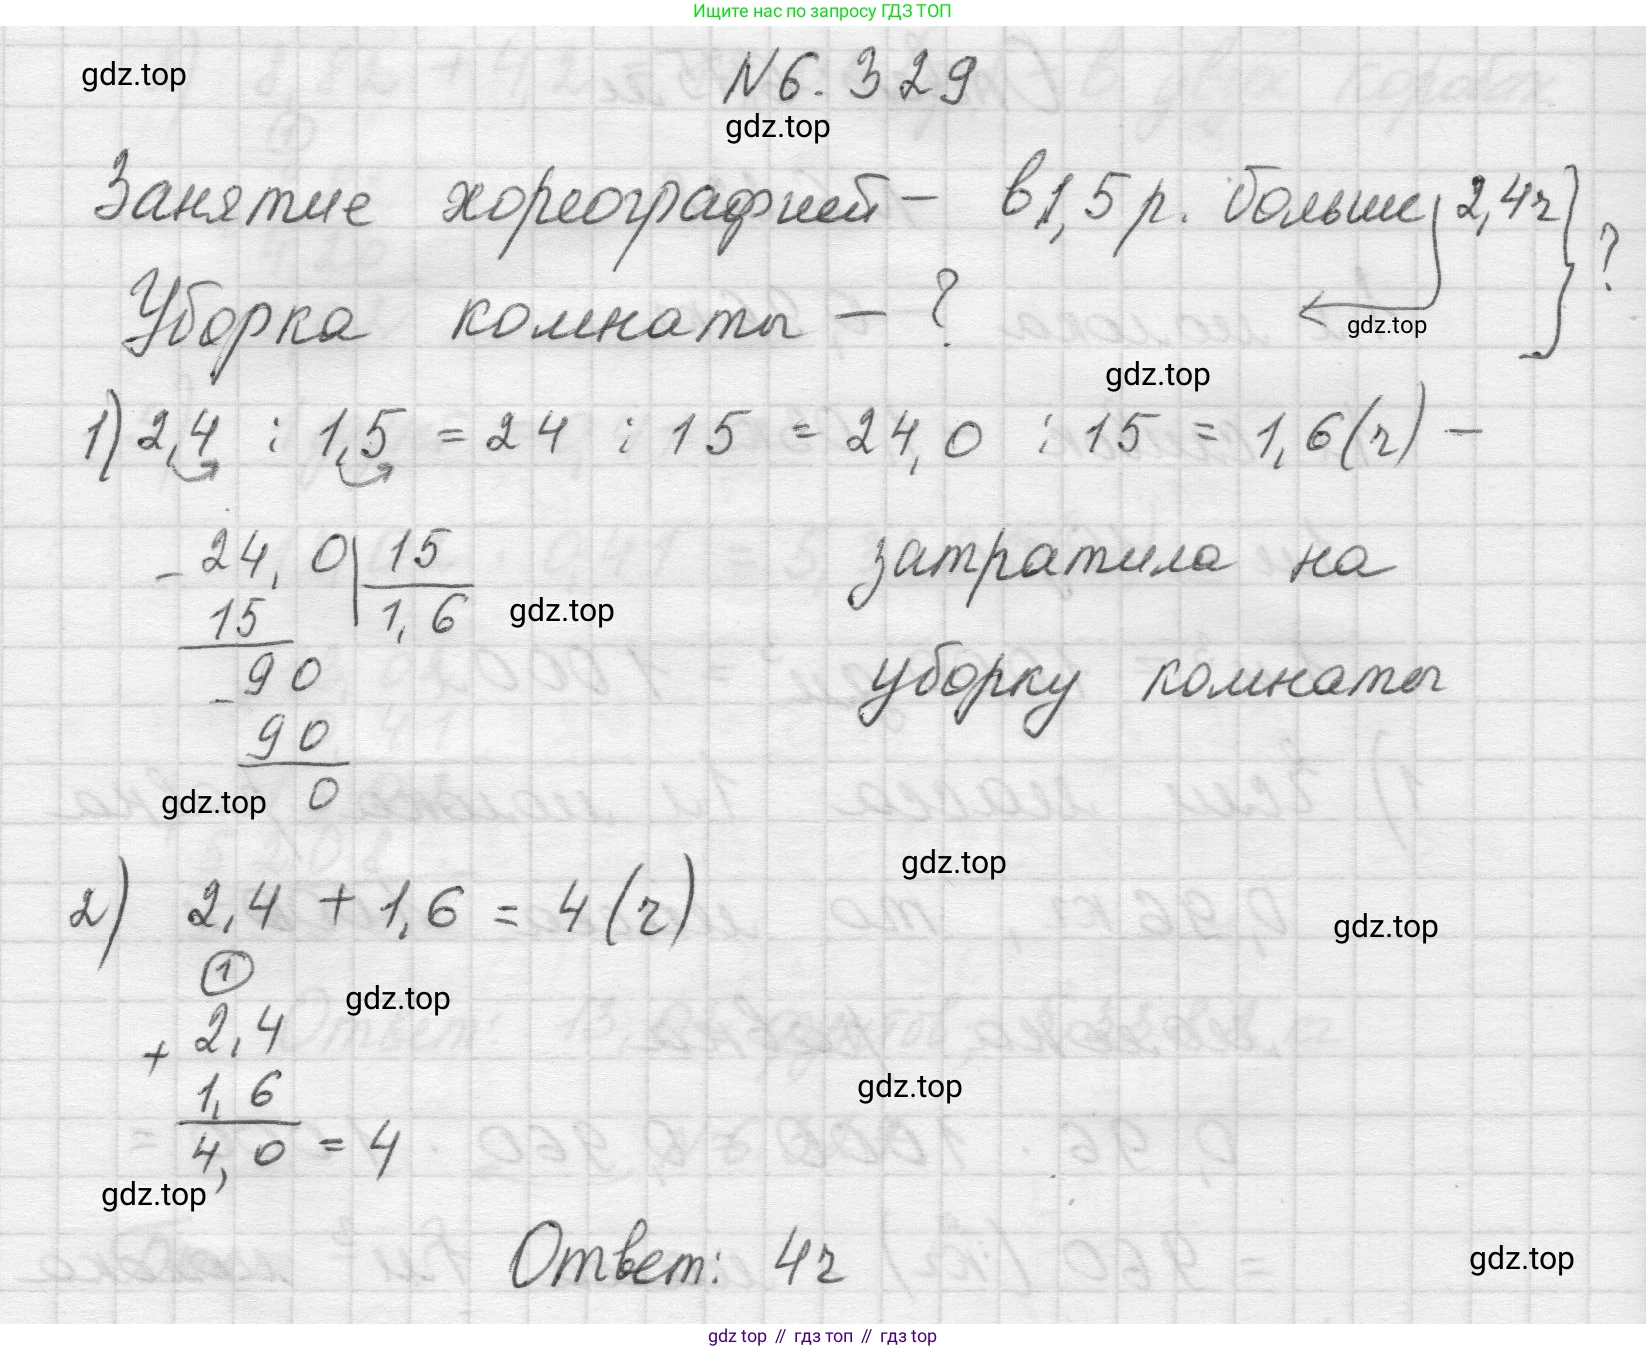 Ищите нас по запросу ГДЗ ТОП
gdz.top
N6.329
gdz.top
Занятие хореографией – в 1,5 р. больше, 2,4ч } ?
Уборка комнаты – ?
gdz.top
gdz.top
1) 2,4 : 1,5 = 24 : 15 = 24,0 : 15 = 1,6(ч) –
затратила на
уборку комнаты
- 24,0 | 15
15 | 1,6
gdz.top
- 90
90
0
gdz.top
2) 2,4 + 1,6 = 4(ч)
gdz.top
gdz.top
1
gdz.top
+ 2,4
1,6
gdz.top
4,0 = 4
gdz.top
Ответ: 4ч
gdz.top
gdz top // гдз топ // гдз top